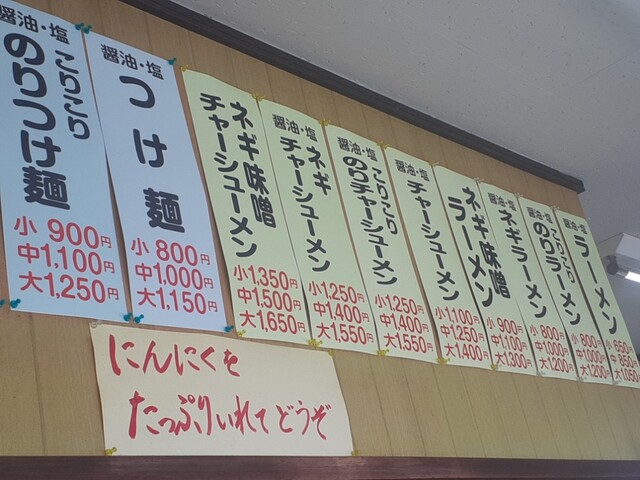 ラーメン
醤油・塩
小 650
中 850
大1,050
こりこり
のりラーメン
醤油・塩
小 800
中1,000
大1,200
ネギラーメン
醤油・塩
小 800
中1,000
大1,200
ネギ味噌
ラーメン
小 900円
中1,100円
大1,300円
チャーシューメン
醤油・塩
小1,100円
中1,250円
大1,400円
こりこり
のりチャーシューメン
醤油・塩
小1,250円
中1,400円
大1,550円
ネギ
チャーシューメン
醤油・塩
小1,250円
中1,400円
大1,550円
ネギ味噌
チャーシューメン
小1,350円
中1,500円
大1,650円
つけ麺
醤油・塩
小 800円
中1,000円
大1,150円
こりこり
のりつけ麺
醤油・塩
小 900円
中1,100円
大1,250円
にんにくを
たっぷりいれてどうぞ